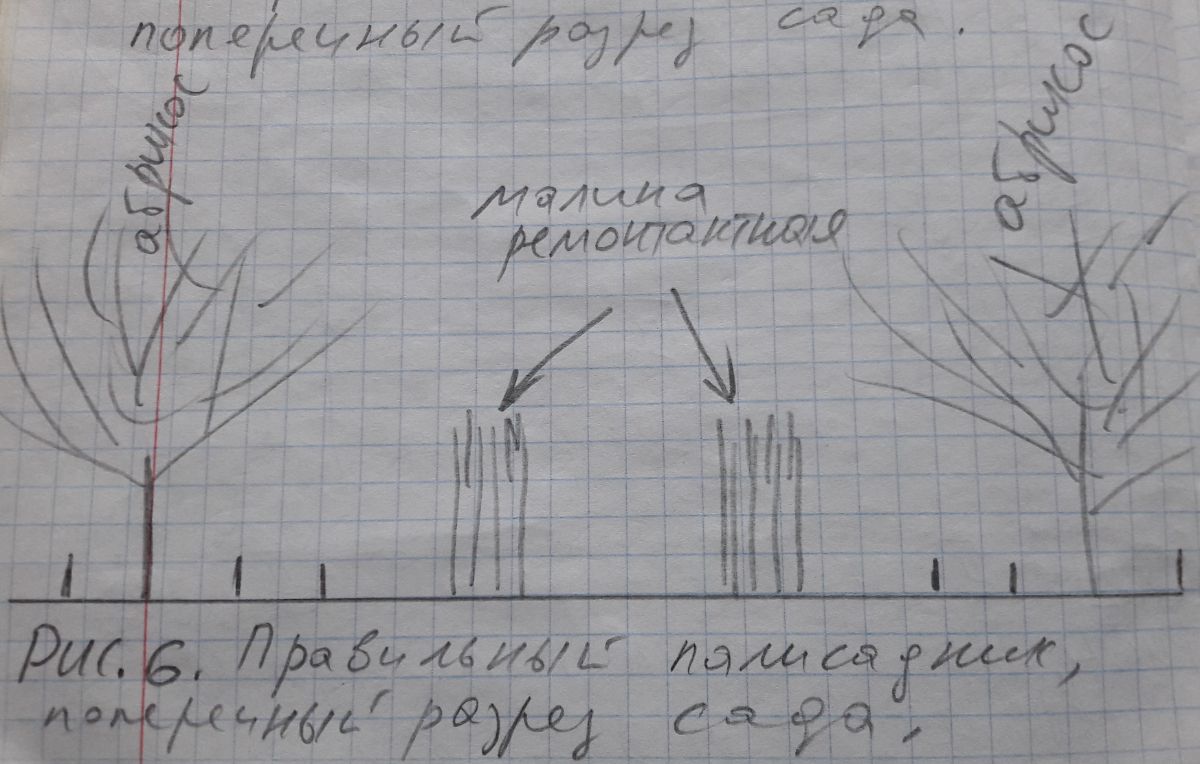 поперечный разрез сада.
абрикос
абрикос
малина
ремонтантная
Рис. 6. Правильный палисадник,
поперечный разрез сада.